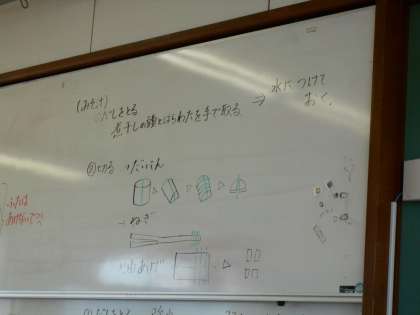 (みそ汁)
だしをとる
煮干しの頭とはらわたを手で取る ⇒ 水につけて
おく。
②切る ・だいこん
・ねぎ
・油あげ
ふたは
あけないで